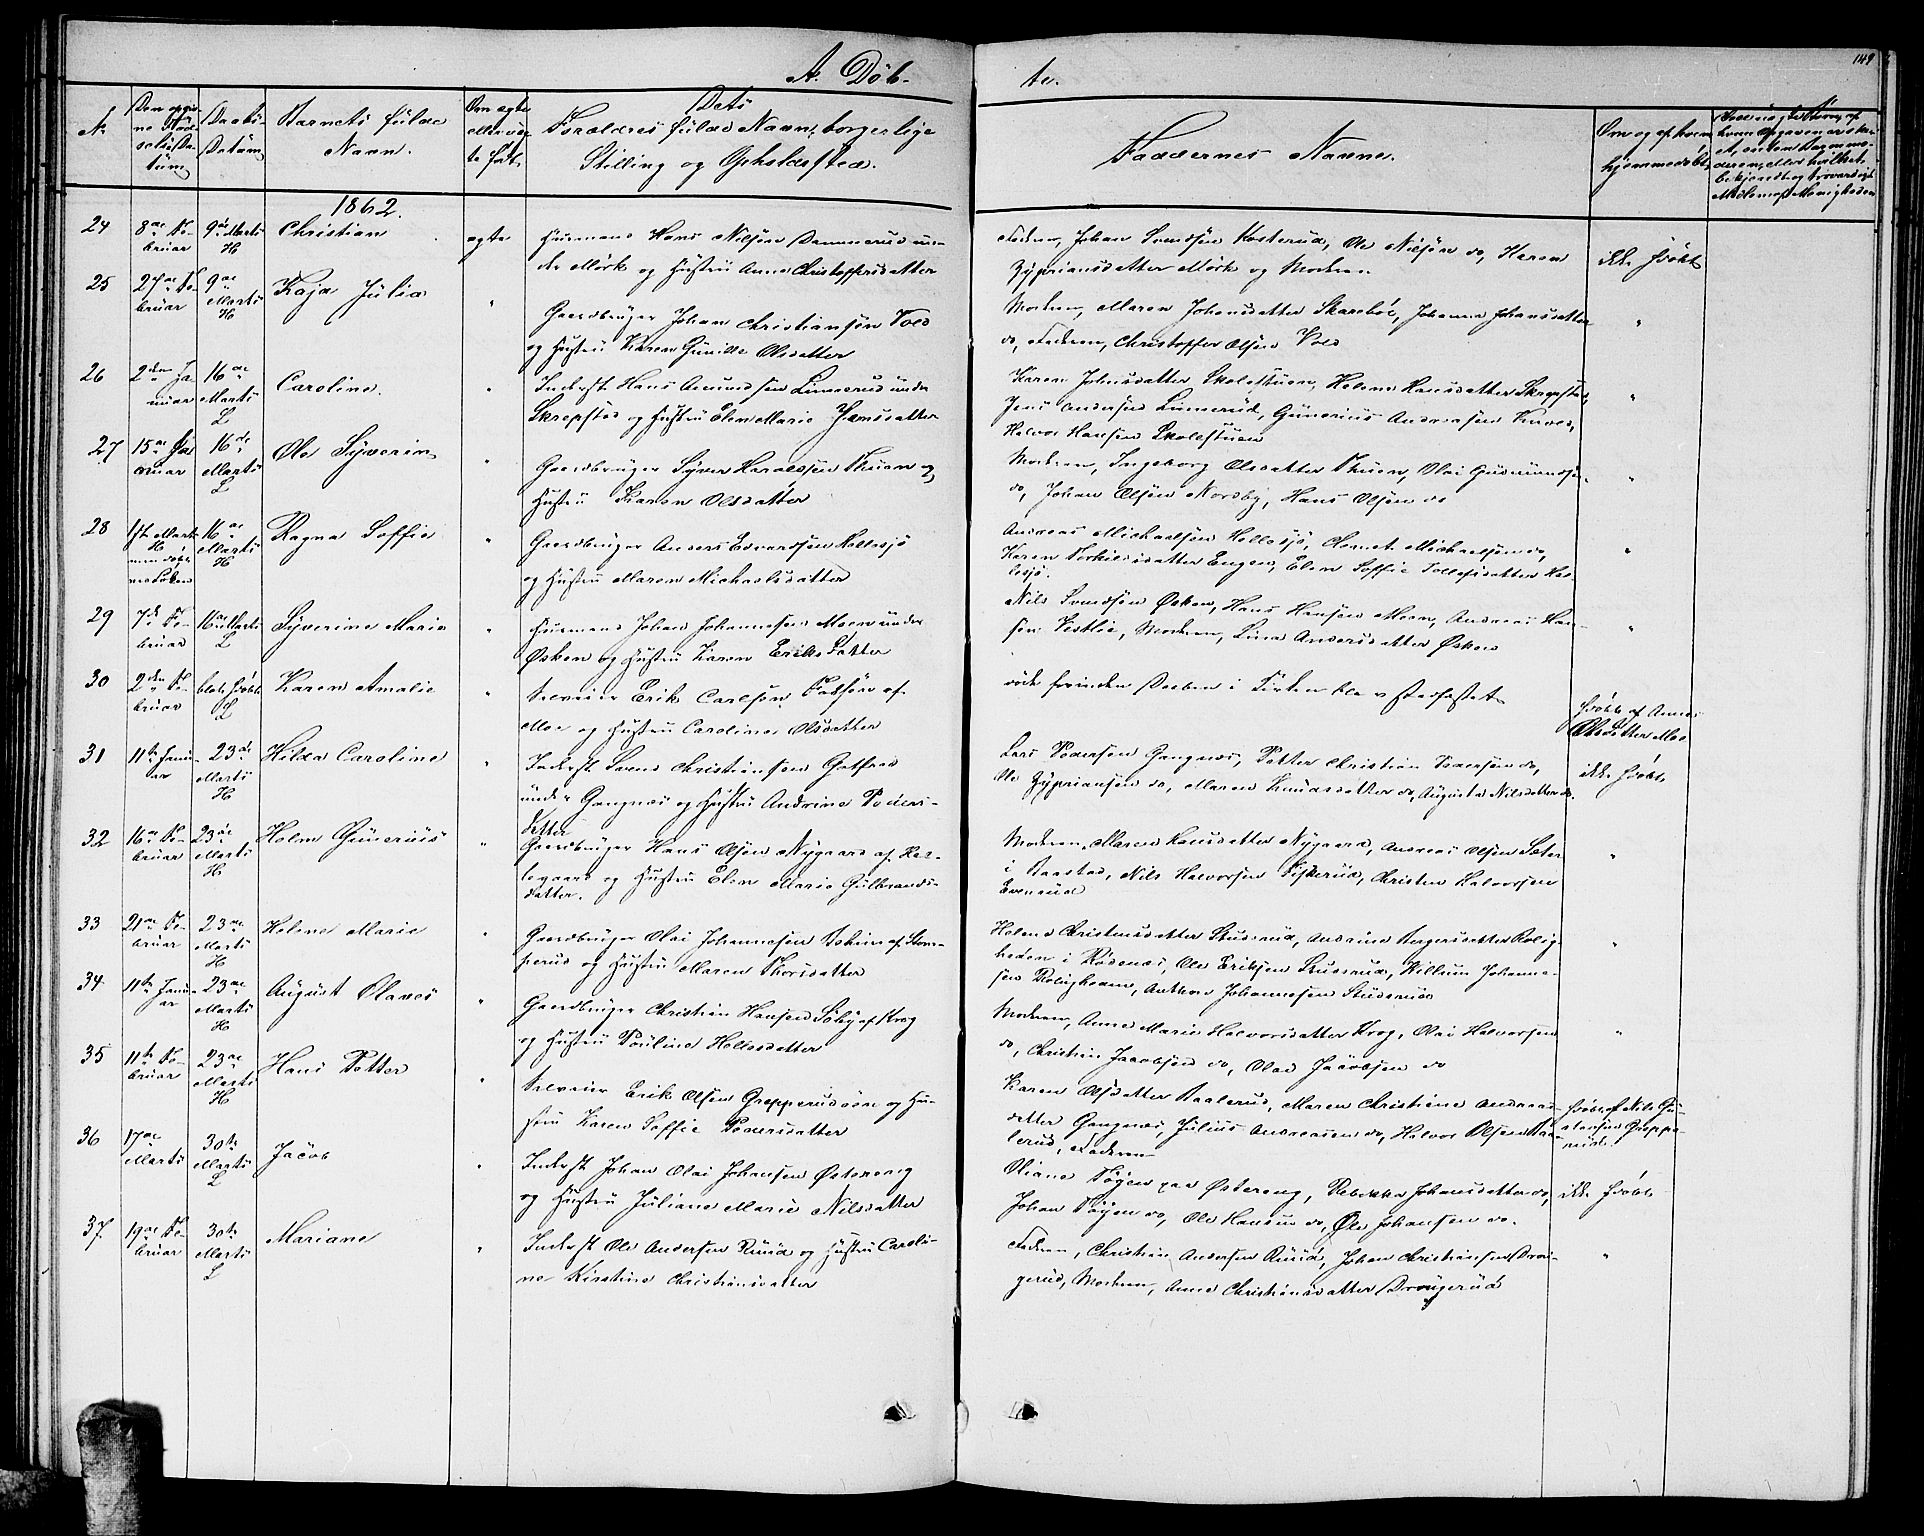 149
A. Døb- te.
N:
Den opgiv-
ne Fød-
selsda-
tum
Daabs-
Datum
Barnets fulde
Navn.
Om ægte
eller uæg-
te født.
Dets
Forældres fulde Navn, borgerlige
Stilling og Opholdssted.
Faddernes Navne.
Om og af hvem
hjemmedøbt.
1862.
24
8de Fe-
bruar
9de Marts
H
Christian
ægte
Huusmand Hans Nilsen Dammerud un-
der Mørk og Hustru Anne Christophersdatter
Faderen, Johan Svendsen Kosterud, Ole Nilsen do, Karen
Zypriansdatter Mørk og Moderen
ikke hdøbt
25
27de Fe-
bruar
9de
Marts
H
Kaja Julia
"
Gaardbruger Johan Christiansen Vold
og Hustru Karen Gunille Olsdatter
Moderen, Maren Johansdatter Skarebøl, Johanne Johansdatter
do, Faderen, Christopher Olsen Vold
"
26
2den Ja-
nuar
16de
Marts
L
Caroline.
"
Inderst Hans Amundsen Linnerud under
Skrepstad og Hustru Elen Marie Hansdatter
Karen Johnsdatter Skolestuen, Helene Hansdatter Skrepstad,
Jens Andersen Linnerud, Gunerius Andreasen
Halvor Hansen Skolestuen
"
27
15de Ja-
nuar
16de
Marts
L
Ole Syverin
"
Gaardbruger Syver Haraldsen Thuen og
Hustru Karen Olsdatter
Moderen, Ingeborg Olsdatter Thuen, Olai Gudmundsen
do, Johan Olsen Nordby, Hans Olsen do
"
28
1ste Marts
16de
Marts
H
Ragna Soffie
"
Gaardbruger Anders Edvardsen Hellesjø
og Hustru Maren Michaelsdatter
Andreas Michaelsen Hellesjø, Clemet Michaelsen do,
Karen Torkildsdatter Engen, Elen Soffie Tollefsdatter Hel-
lesjø.
"
29
7de Fe-
bruar
16de Marts
L
Syverine Marie
"
Huusmand Johan Johannesen Moen under
Østen og Hustru Karen Eriksdatter
Nils Svendsen Østen, Hans Hansen Moen, Andreas Han-
sen Vestlie, Moderen, Lina Andersdatter Østen
"
30
2den Fe-
bruar
blot hdøbt
L
Karen Amalie
"
Selveier Erik Carlsen Fossen af
Moe og Hustru Caroline Olsdatter
døde forinden Daaben i Kirken blev stadfæstet
hdøbt af Anne
Olsdatter Moe
31
11te Janu-
ar
23de
Marts
H
Hilda Caroline
"
Inderst Svend Christiansen Gotfred
under Gangnæs og Hustru Andrine Peders-
datter
Lars Pedersen Gangnæs, Petter Christian Pedersen do,
Ole Zypriansen do, Maren Knudsdatter do, Augusta Nilsdatter do.
ikke hdøbt
32
16de Fe-
bruar
23de
Marts
H
Holm Gunerius
"
Gaardbruger Hans Olsen Nygaard af Has-
legaard og Hustru Elen Marie Gulbrands-
datter.
Moderen, Maren Hansdatter Nygaard, Andreas Olsen Sæter
i Raastad, Nils Halvorsen Fiskerud, Christen Halvorsen
Evenrud
"
33
21de Fe-
bruar
23de
Marts
H
Helene Marie
"
Gaardbruger Olai Johannesen Askim af Slom-
perud og Hustru Maren Thorsdatter
Helene Christensdatter Studsrud, Andrine Børgersdatter Rolig-
heden i Rødenæs, Ole Eriksen Studsrud, Willum Johanne-
sen Roligheden, Anthon Johannesen Studsrud
"
34
11te Janu-
ar
23de
Marts
H
August Olaves
"
Gaardbruger Christian Hansen Søby af Krog
og Hustru Pouline Hellesdatter
Moderen, Anne Marie Halvorsdatter Krog, Olai Halvorsen
do, Christian Jacobsen do, Olai Jacobsen do
"
35
11te Fe-
bruar
23de
Marts
H
Hans Petter
"
Selveier Erik Olsen Grepperudøen og Hu-
stru Karen Soffie Pedersdatter
Karen Olsdatter Taalerud, Maren Christine Andreas-
datter Gangnæs, Julius Andreassen do, Halvor Olsen Taa-
lerud, Faderen
hdøbt af Nils Gu-
stavsen Greppe-
rud
36
17de
Marts
30te
Marts
L
Jacob
"
Inderst Johan Olai Johansen Østereng
og Hustru Juliane Marie Nilsdatter
Oliane Tøyen paa Østereng, Rebekka Johansdatter do,
Johan Tøyen do, Ole Hansen do, Ole Johansen do.
ikke hdøbt
37
19de Fe-
bruar
30te
Marts
L
Mariane
"
Inderst Ole Andersen Ruud og Hustru Caroli-
ne Kirstine Christiansdatter
Faderen, Christian Andersen Ruud, Johan Christiansen Drau-
gerud, Moderen, Anne Christiansdatter Draugerud
"